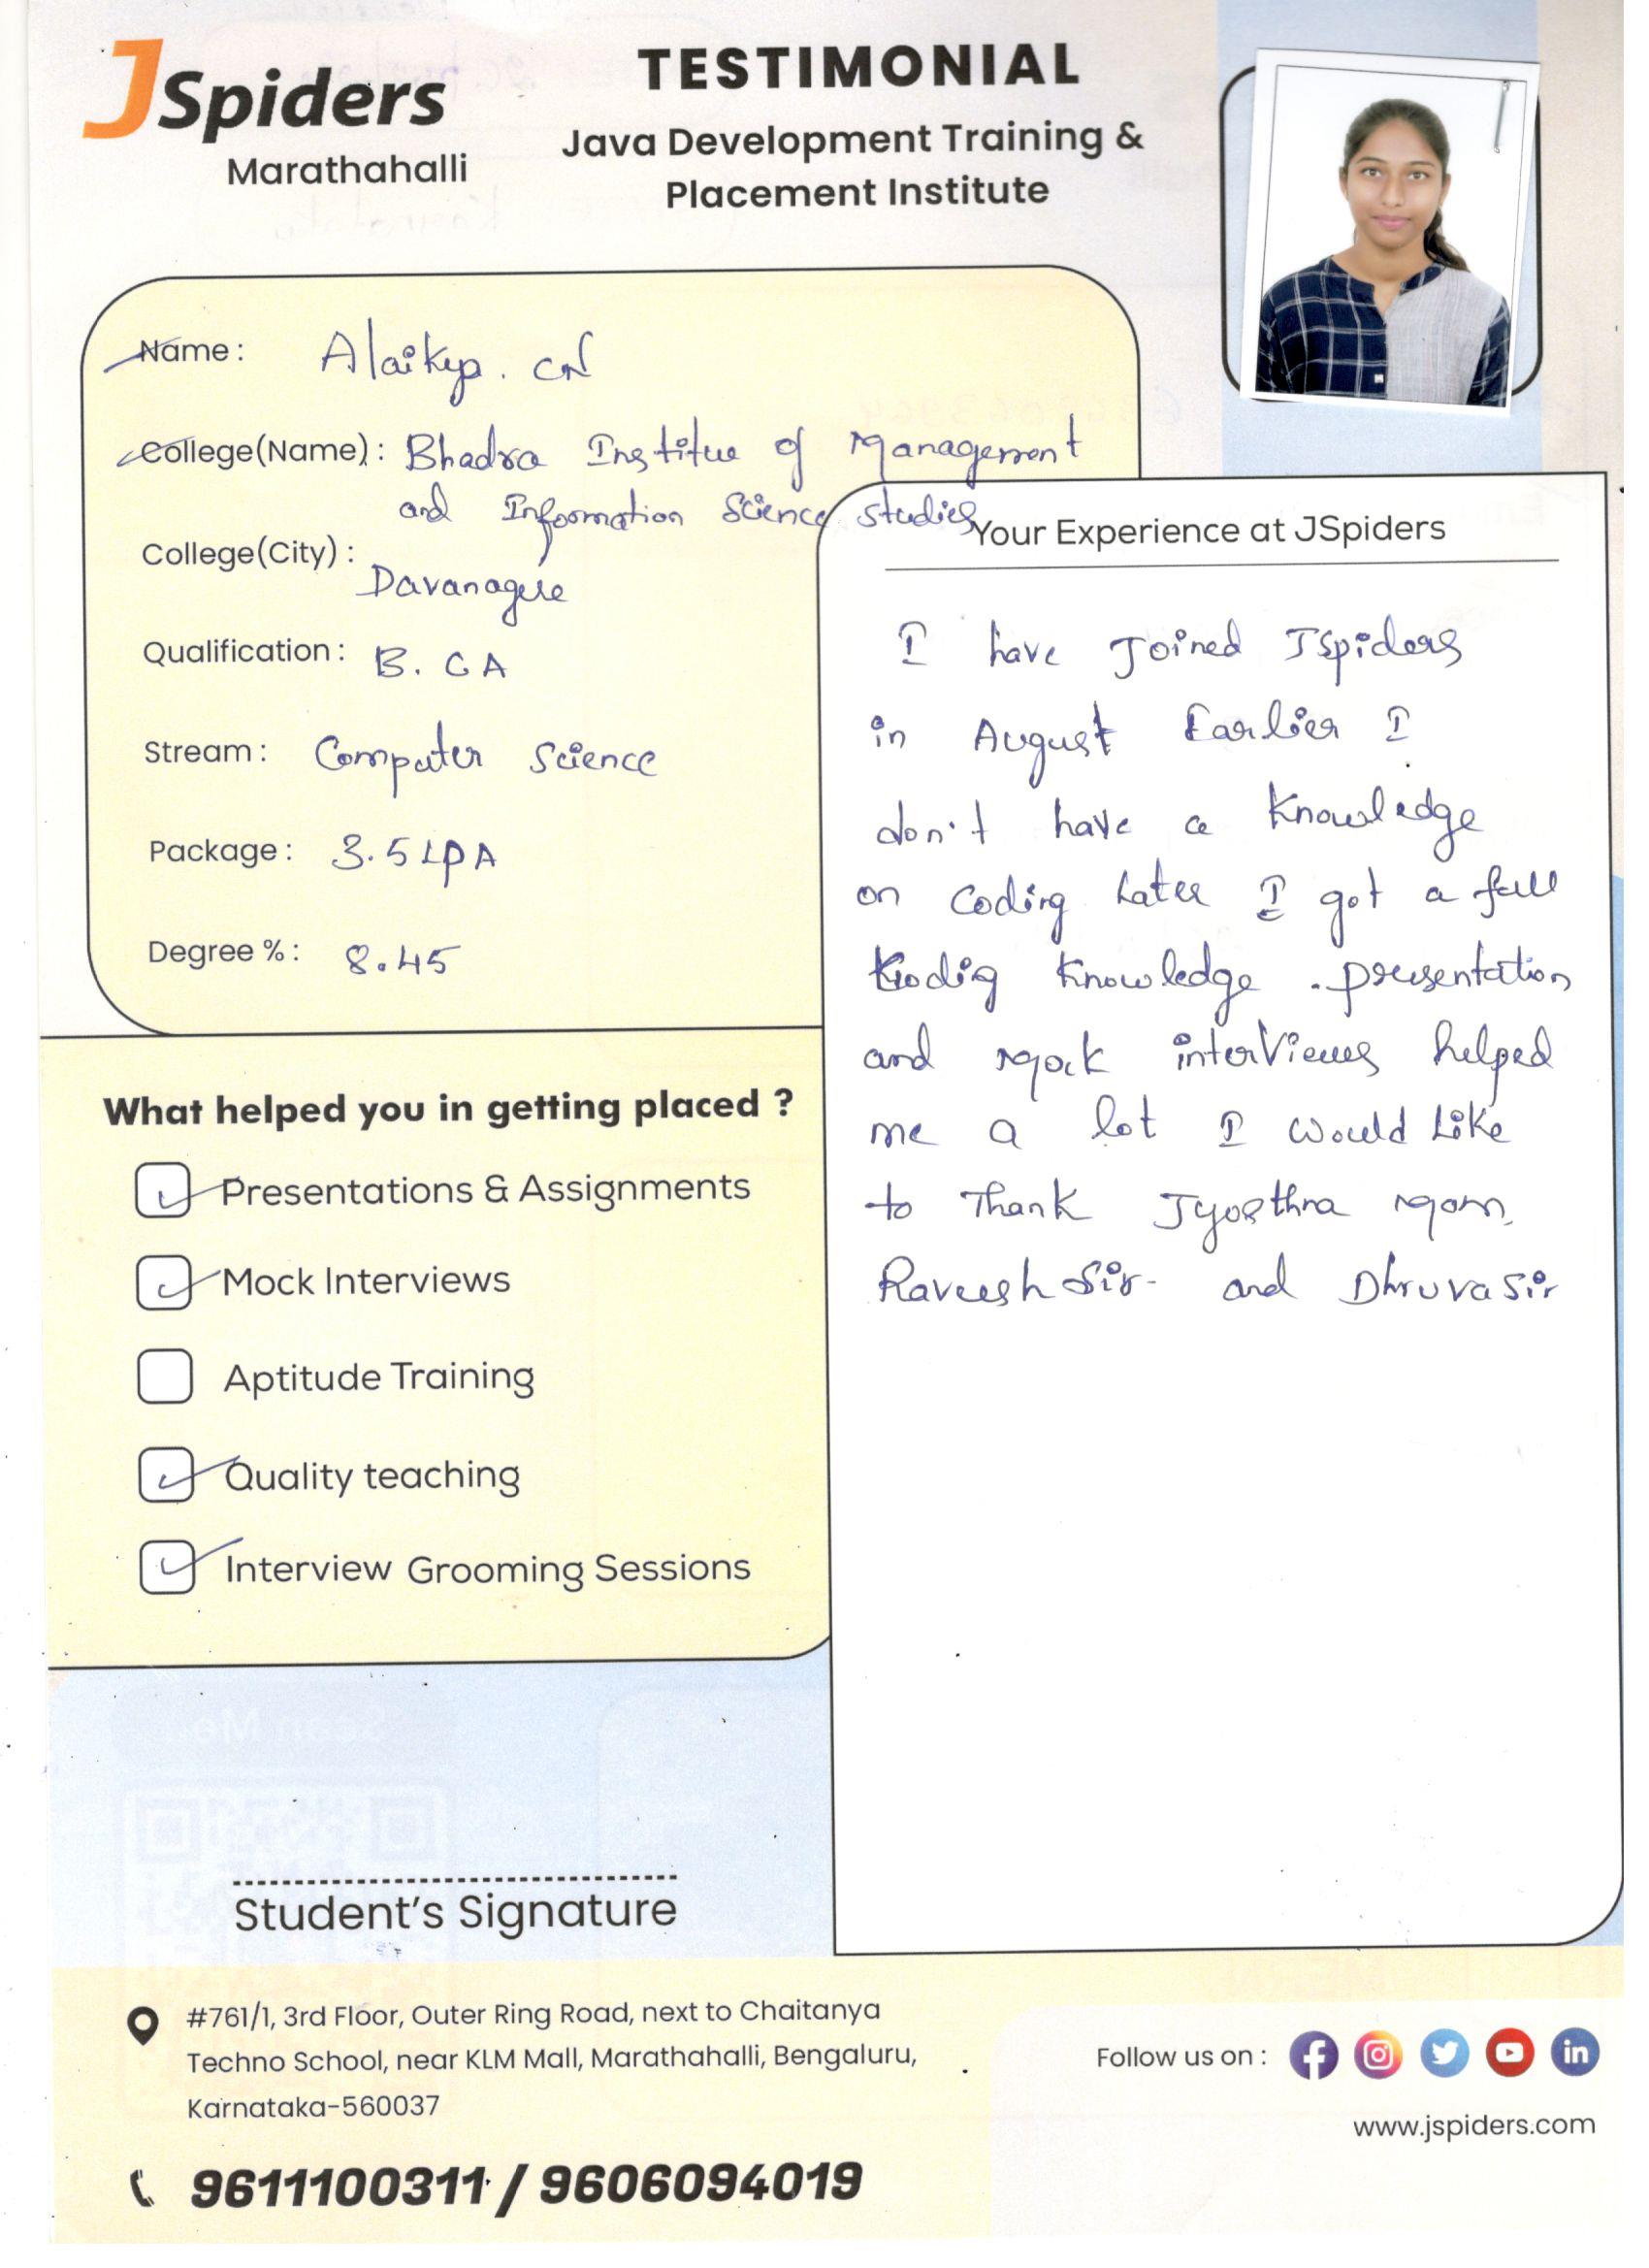 JSpiders
Marathahalli
TESTIMONIAL
Java Development Training &
Placement Institute
Name : Alaikya. CN
College(Name) : Bhadra Institue of Management
and Information Science studies
College(City) :
Davanagere
Qualification : B. CA
Stream : Computer Science
Package : 3.5 LPA
Degree % : 8.45
What helped you in getting placed ?
Presentations & Assignments
Mock Interviews
Aptitude Training
Quality teaching
Interview Grooming Sessions
Your Experience at JSpiders
I have Joined JSpiders
in August Earlier I
don't have a Knowledge
on Coding Later I got a full
Codig Knowledge . presentation
and Mock interviews helped
me a lot I would Like
to Thank Jyosthna Mam,
Raveesh Sir- and Dhruva Sir
Student's Signature
#761/1, 3rd Floor, Outer Ring Road, next to Chaitanya
Techno School, near KLM Mall, Marathahalli, Bengaluru,
Karnataka-560037
9611100311 / 9606094019
Follow us on :
www.jspiders.com